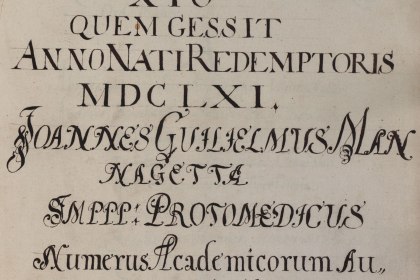 QUEM GESSIT
ANNO NATI REDEMPTORIS
MDCLXI.
JOANNES GUILIELMUS MAN
NAGETTA
IMPPP: PROTOMEDICUS
Numerus Academicorum Au,